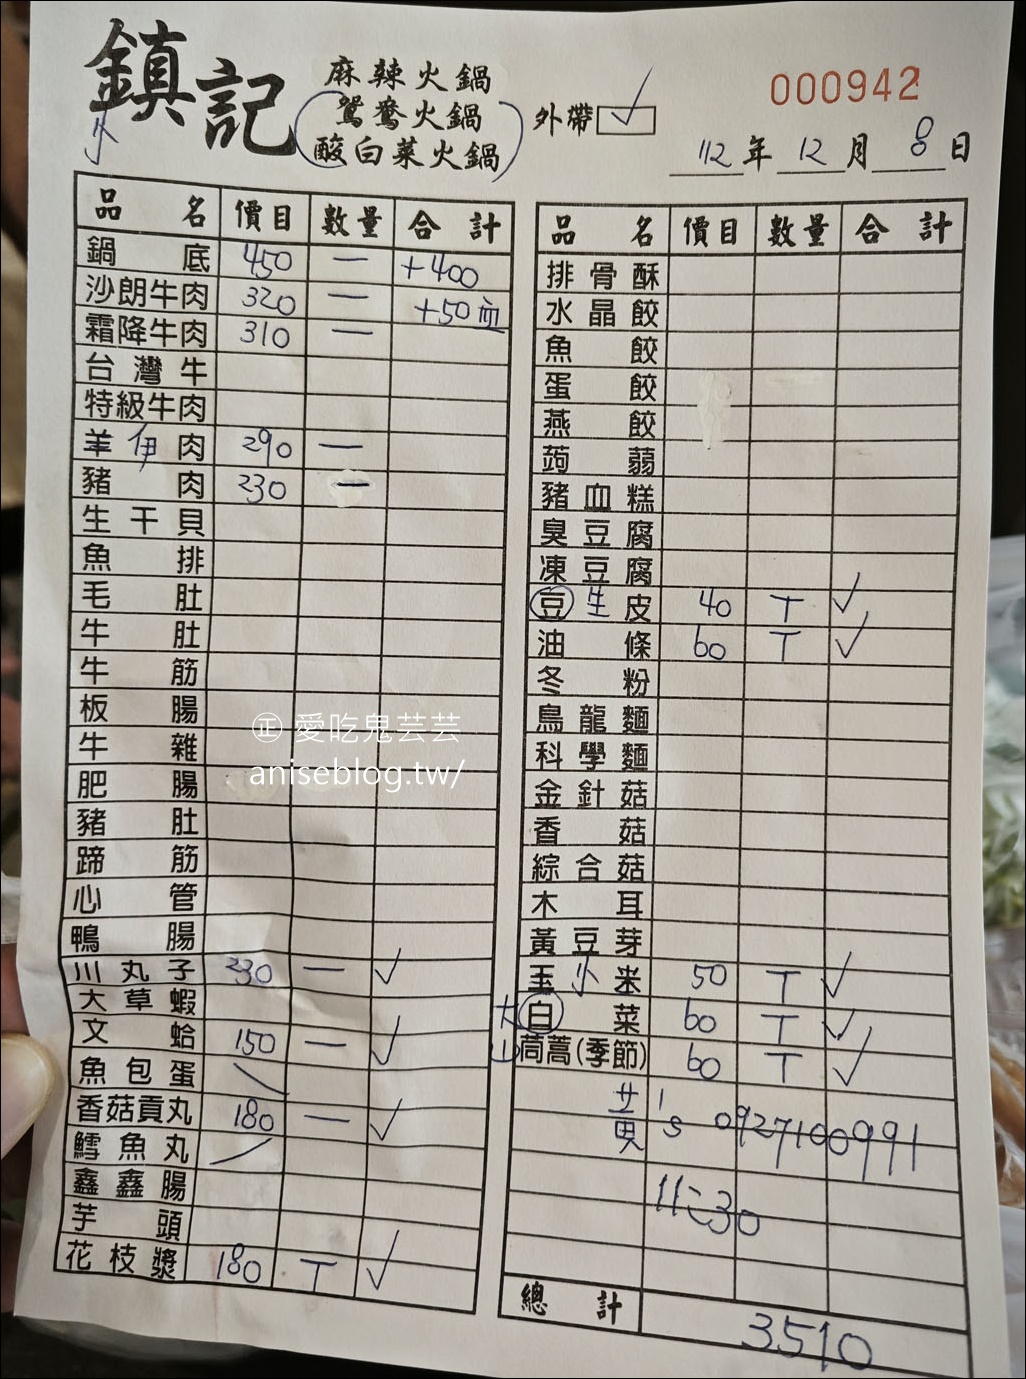 鎮記
小
麻辣火鍋
鴛鴦火鍋
酸白菜火鍋
外帶 ✓
000942
112年12月8日
品名 價目 數量 合計
鍋底 450 一 +400
沙朗牛肉 320 一 +50
霜降牛肉 310 一
台灣牛
特級牛肉
羊伊肉 290 一
豬肉 230 一
生干貝
魚排
毛肚
牛肚
牛筋
板腸
牛雜
肥腸
豬肚
蹄筋
心管
鴨腸
川丸子 230 一 ✓
大草蝦
文蛤 150 一 ✓
魚包蛋
香菇貢丸 180 一 ✓
鱈魚丸
鑫鑫腸
芋頭
花枝漿 180 T ✓
品名 價目 數量 合計
排骨酥
水晶餃
魚餃
蛋餃
燕餃
蒟蒻
豬血糕
臭豆腐
凍豆腐
豆生皮 40 T ✓
油條 60 T ✓
冬粉
烏龍麵
科學麵
金針菇
香菇
綜合菇
木耳
黃豆芽
玉小米 50 T ✓
大白菜 60 T ✓
山茼蒿(季節) 60 T ✓
黃's 0927100991
11:30
總計 3510
㊣ 愛吃鬼芸芸
aniseblog.tw/